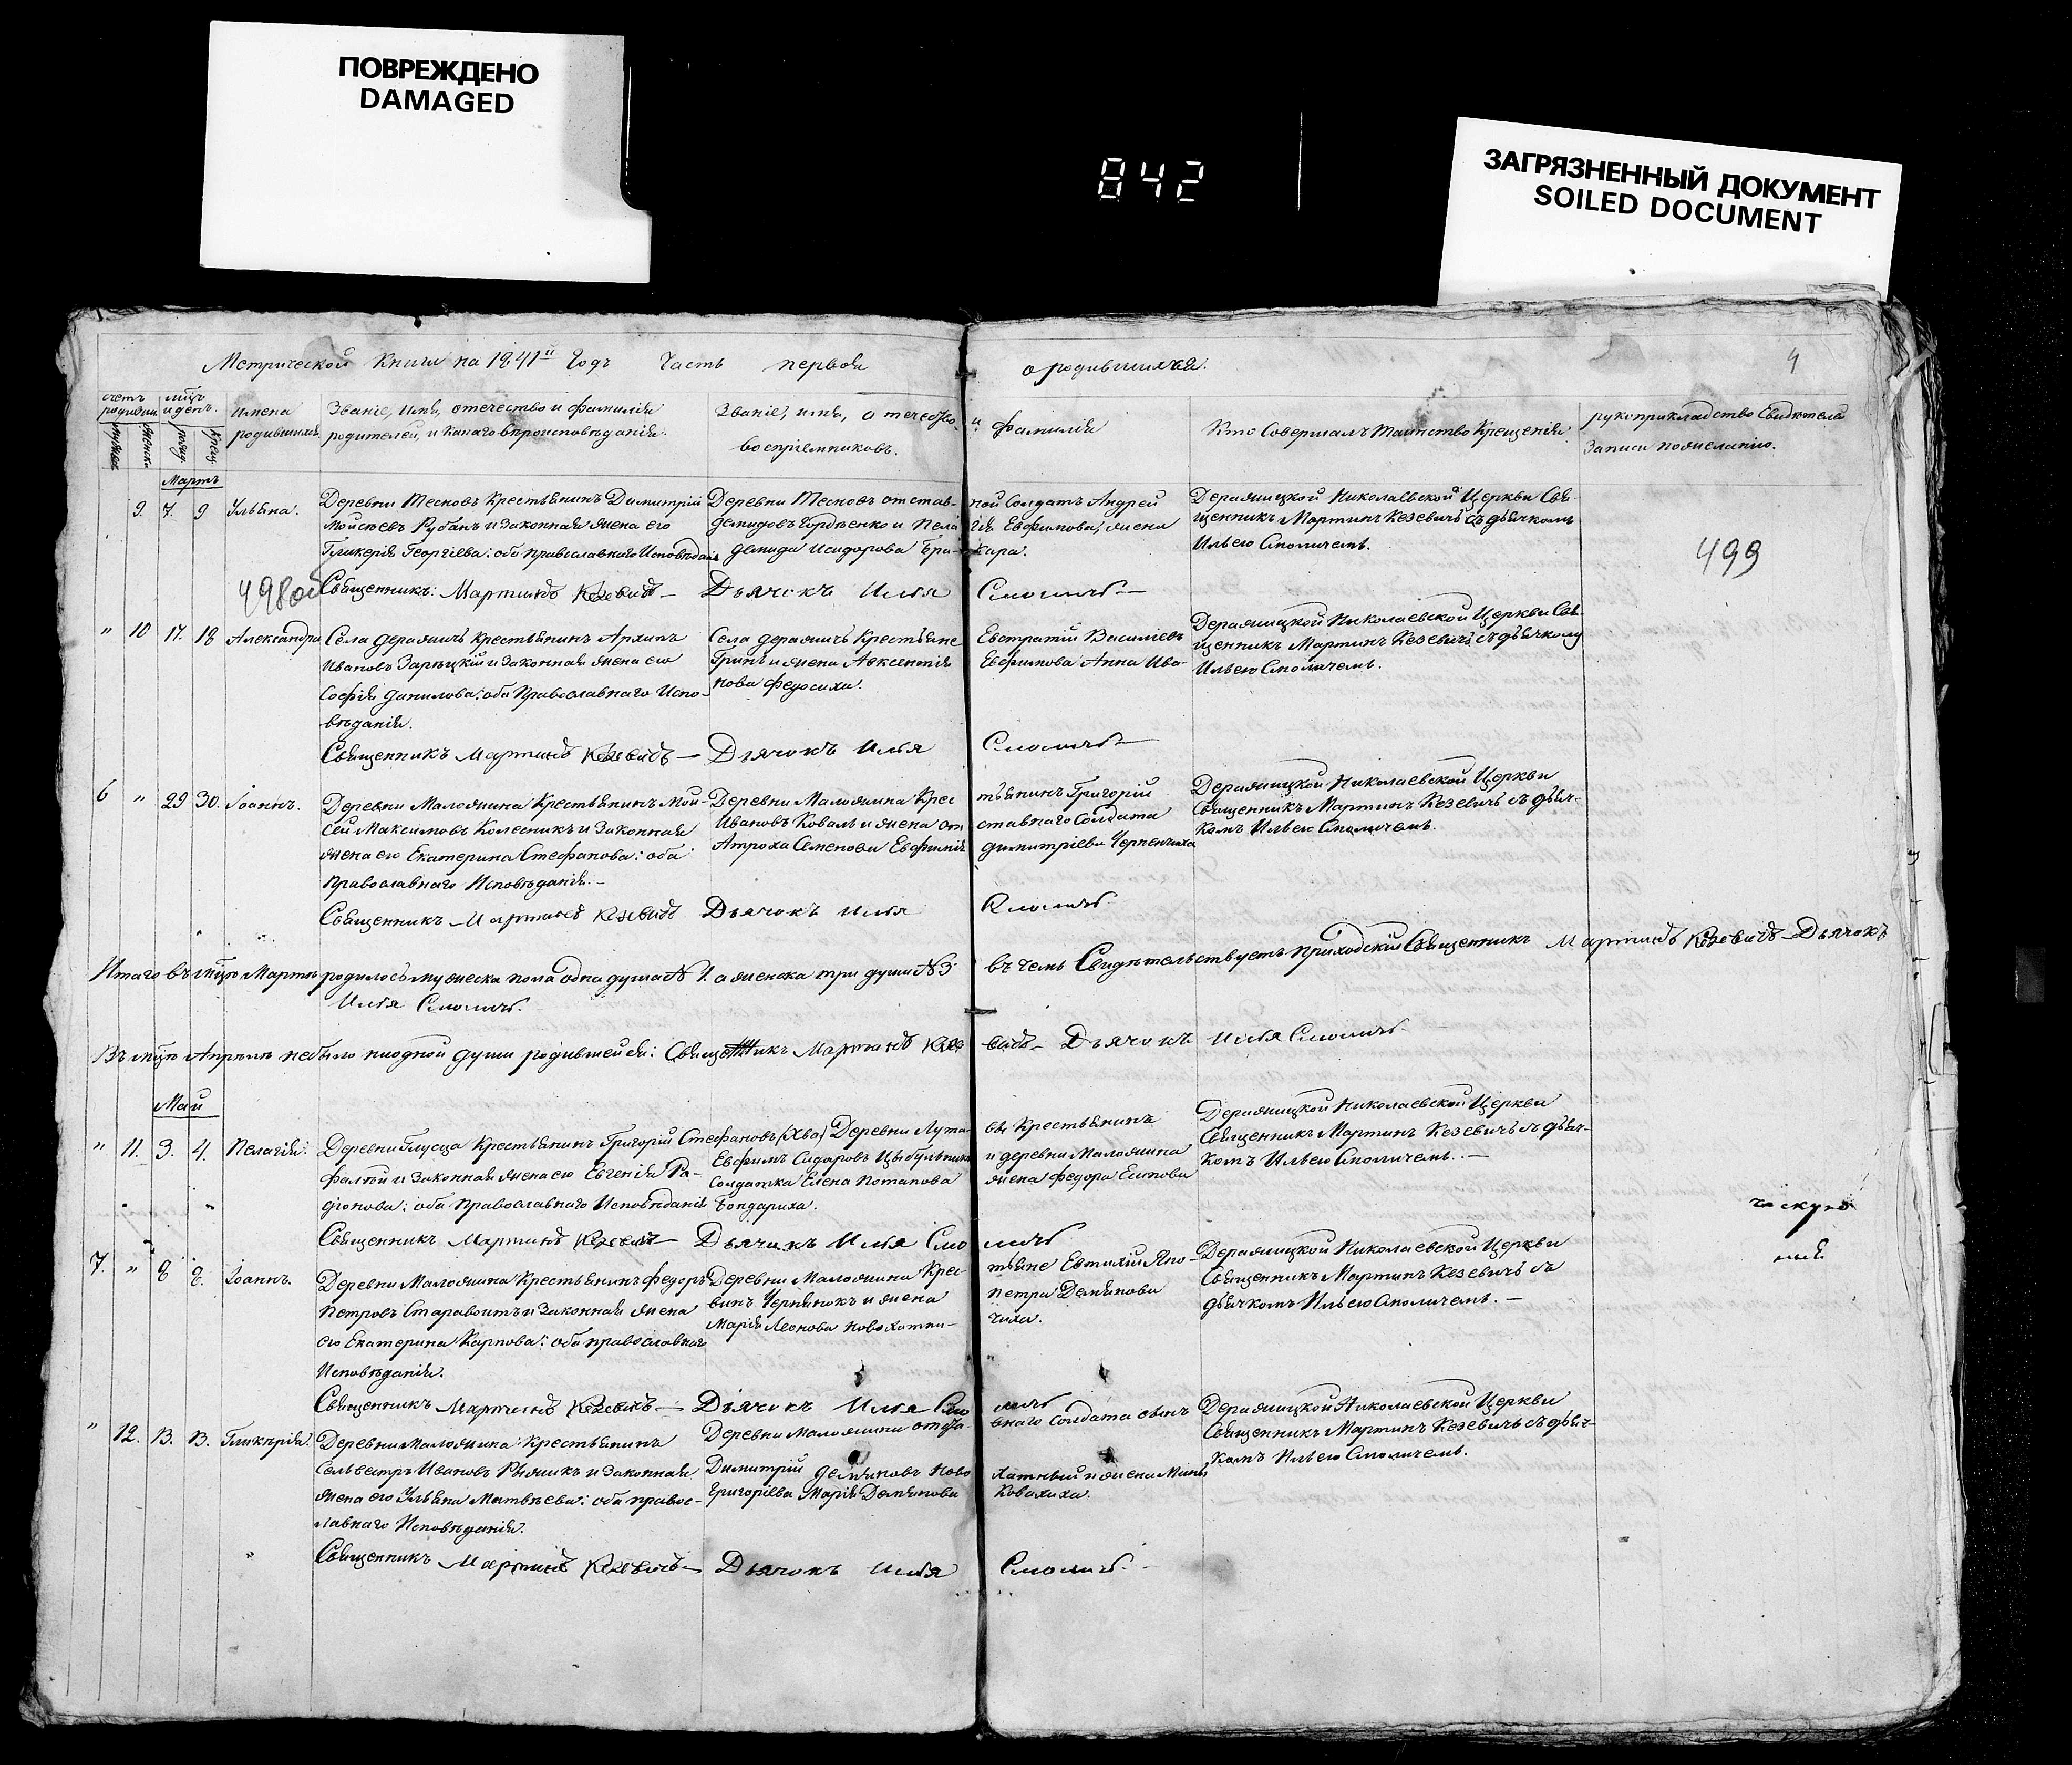 ПОВРЕЖДЕНО
DAMAGED
842
ЗАГРЯЗНЕННЫЙ ДОКУМЕНТ
SOILED DOCUMENT
Метрической Книги на 1841й Годъ Часть первая о родившихся.
4
счетъ родивш
мцъ и день.
имена родившихся
Званіе, имя, отечество и фамилія
родителей, и какаго вѣроисповѣданія.
Званіе, имя, отечество и фамилія
воспріемниковъ.
Кто Совершалъ таинство Крещенія
рукоприкладство Свидѣтелей
Записи по желанію.
Мартъ
9. 7. 9 Ульяна.
Деревни Тесновъ Крестьянинъ Димитрій
Мойсѣевъ Рубанъ и законная жена его
Гликерія Георгіева: оба православнаго Исповѣданія
Деревни Тесновъ отставной Солдатъ Андрей
Демидовъ Гордѣенко и Пелагія Евфимова, жена
Демида Исидорова
Деражицкой Николаевской Церкви Священникъ Мартинъ Кезевичъ съ дьячкомъ
Ильею Смоличемъ.
498об
499
Священникъ: Мартинъ Кезевичъ — Дьячокъ Илья Смоличъ —
" 10 17. 18 Александра
Села Деражичъ Крестьянинъ Архипъ
Ивановъ Зарѣцкій и законная жена его
Софія Данилова: оба Православнаго Исповѣданія.
Села Деражичъ Крестьяне Евстратій Василіевъ
Гринь и жена Авксентія Евфимова Анна Иванова Федосиха.
Деражицкой Николаевской Церкви Священникъ Мартинъ Кезевичъ съ дьячкомъ
Ильею Смоличемъ.
Священникъ Мартинъ Кезевичъ — Дьячокъ Илья Смоличъ —
6 " 29 30. Іоаннъ.
Деревни Маложина Крестьянинъ Мойсей Максимовъ Колесникъ и законная
жена его Екатерина Стефанова: оба
Православнаго Исповѣданія. —
Деревни Маложина Крестьянинъ Григорій
Ивановъ Коваль и жена отставнаго Солдата
Атроха Семенова Евфимія Димитріева
Деражицкой Николаевской Церкви
Священникъ Мартинъ Кезевичъ съ дьячкомъ Ильею Смоличемъ.
Священникъ Мартинъ Кезевичъ Дьячокъ Илья Смоличъ
Итаго въ мцѣ Мартѣ родилось мужеска пола одна душа № 1. а женска три души № 3 въ чемъ Свидѣтельствуетъ приходскій Священникъ Мартинъ Кезевичъ — Дьячокъ
Илья Смоличъ.
Въ мцѣ Апрелѣ небыло ниодной души родившейся: Священникъ Мартинъ Кезевичъ — Дьячокъ Илья Смоличъ
Май
" 11. 3. 4. Пелагія.
Деревни Глусца Крестьянинъ Григорій Стефановъ
и законная жена его Евгенія Радіонова: оба Православнаго Исповѣданія
Евфимъ Сидаровъ Цыбульникъ и деревни Маложина
Солдатка Елена Потапова жена Федора Есипова
Бондариха.
Деражицкой Николаевской Церкви
Священникъ Мартинъ Кезевичъ съ дьячкомъ Ильею Смоличемъ. —
Священникъ Мартинъ Кезевичъ — Дьячокъ Илья Смоличъ
7. " 8 8. Іоаннъ.
Деревни Маложина Крестьянинъ Федоръ
Петровъ Старавоитъ и законная жена
его Екатерина Карпова: оба православнаго
Исповѣданія.
Деревни Маложина Крестьяне Евтихій
Чернякъ и жена Петра Демянова
Марія Леонова Новохатничиха.
Деражицкой Николаевской Церкви
Священникъ Мартинъ Кезевичъ съ
дьячкомъ Ильею Смоличемъ. —
Священникъ Мартинъ Кезевичъ — Дьячокъ Илья Смоличъ
" 12. 13. 13. Гликерія.
Деревни Маложина Крестьянинъ
Сельвестръ Ивановъ и законная
жена его Ульяна Матвѣева: оба православнаго Исповѣданія.
Деревни Маложина отставнаго Солдата сынъ
Димитрій Демяновъ Новохатный и жена
Григоріева Марія Демянова Ковалиха.
Деражицкой Николаевской Церкви
Священникъ Мартинъ Кезевичъ съ дьячкомъ Ильею Смоличемъ.
Священникъ Мартинъ Кезевичъ — Дьячокъ Илья Смоличъ. —